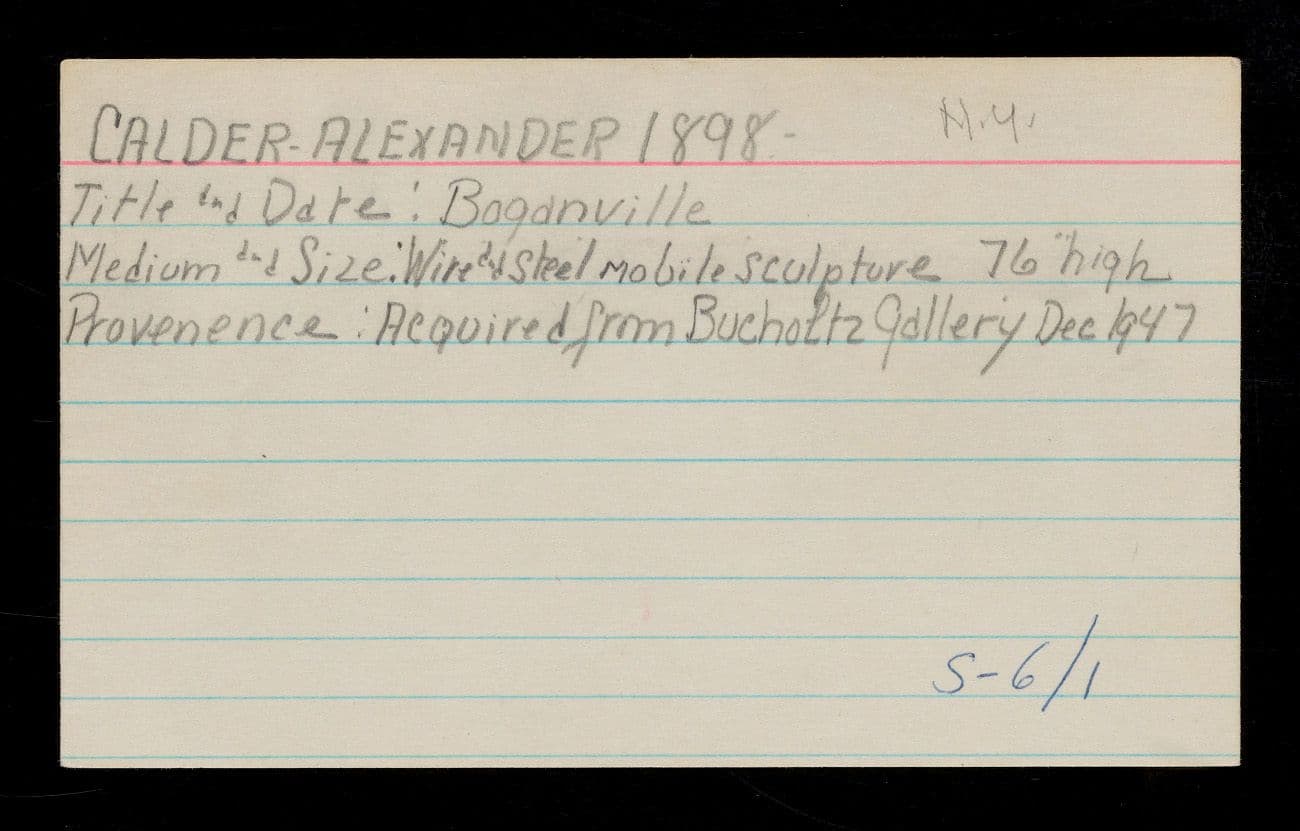 CALDER-ALEXANDER 1898- N.Y.
Title and Date: Boganville
Medium and Size: Wire and Steel mobile sculpture 76" high
Provenence: Acquired from Bucholtz Gallery Dec 1947
S-6/1